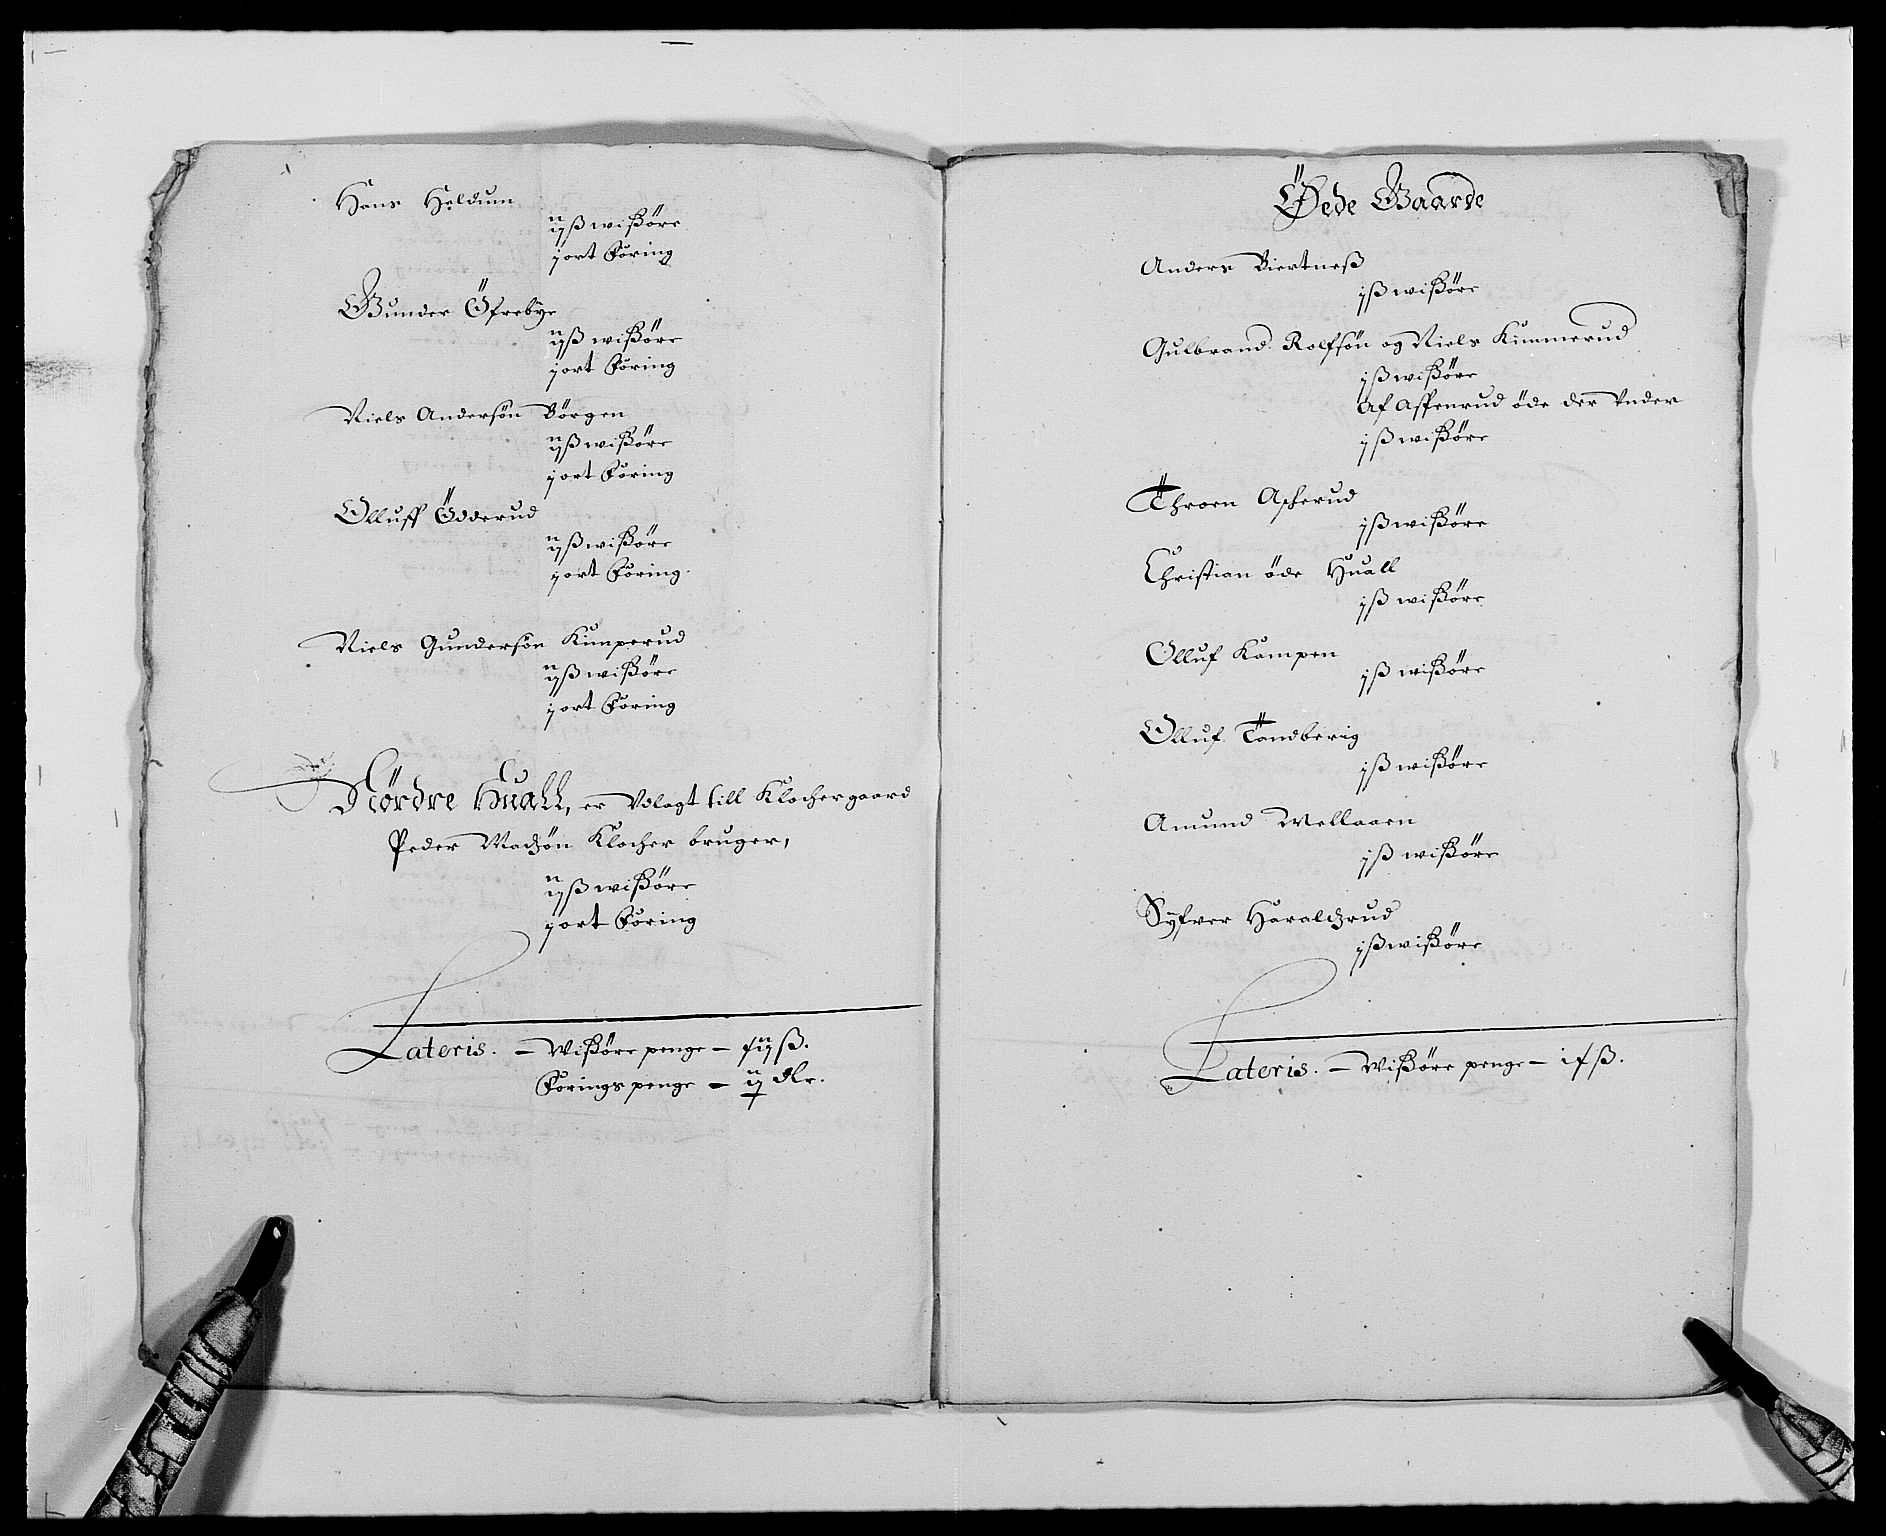 Hans Heldum
ij ß wißøre
j ort Foring
Gunder Öfrebye
ij ß wißøre
j ort Foring
Niels Andersøn Børgen
ij ß wißøre
j ort Foring
Olluff Ødderud
ij ß wißøre
j ort Foring.
Niels Gundersøn Kimperud
ij ß wißøre
j ort Foring
Nørdre Huall, er Vdlagt till Klochergaard
Peder Madzøn Klocher bruger,
ij ß wißøre
j ort Foring
Lateris. – Wißøre penge – ß.
Forings penge – dlr.
Øede Gaarde
Anders Biertneß
j ß wißøre
Gulbrand Rolfsøn og Niels Kimmerud
j ß wißøre
Af Aspenrud øde der Vnder
j ß wißøre
Throen Askerud
j ß wißøre
Christian øde Huall
j ß wißøre
Olluf Kampen
j ß wißøre
Olluf Tandberig
j ß wißøre
Amund Mellaaen
j ß wißøre
Syfver Haraldzrud
j ß wißøre
Lateris. – Wißøre penge – ß.